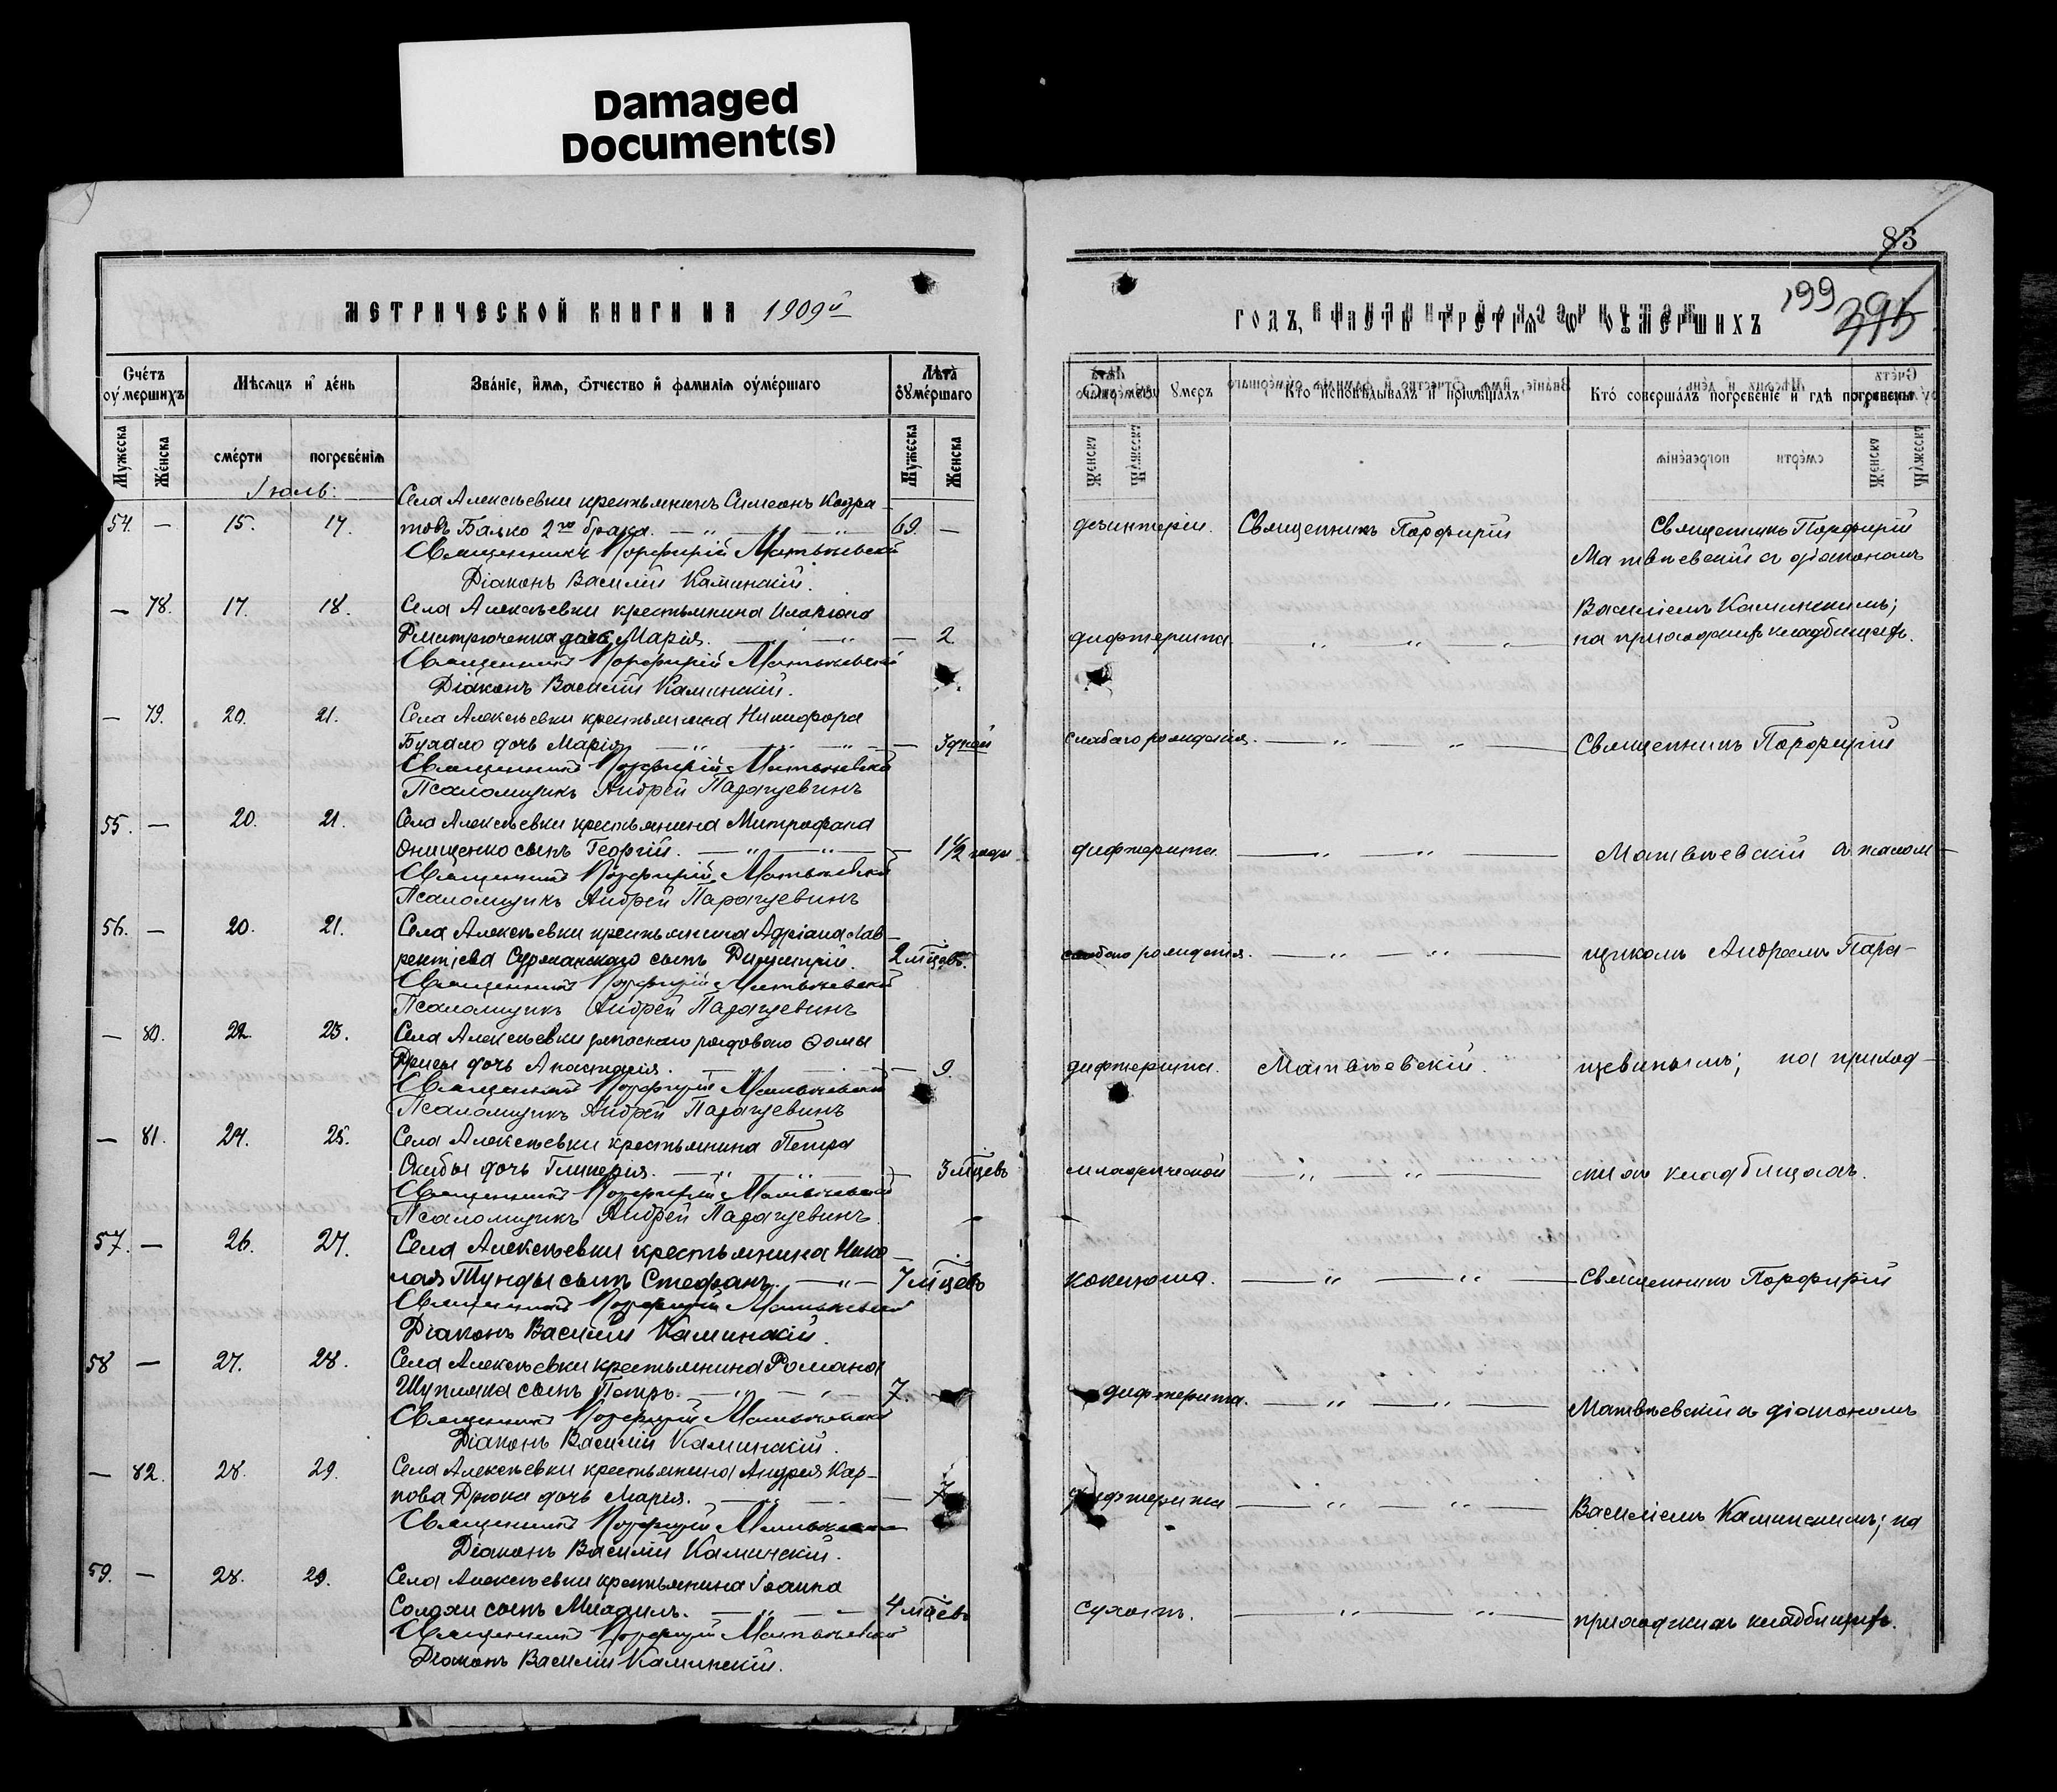 Damaged
Document(s)
МЕТРИЧЕСКОЙ КНИГИ НА 1909й
Счétъ оу҆мершихъ
Мѣсяцъ и день
Званіе, имя, отчество и фамилія оумершаго
Лѣта оумершаго
Мужеска
Женска
смерти
погребенія
Мужеска
Женска
Іюль:
Села Алексѣевки крестьянинъ Симеонъ Кодра
54. — 15. 17. товъ Балко 2го брака. — „ — „ — „ 69. —
Священникъ Порфирій Матвѣевскій
Діаконъ Василій Каминскій.
— 78. 17. 18. Села Алексѣевки крестьянина Иларіона
Дмитрюченка дочь Марія. — „ — „ — 2
Священникъ Порфирій Матвѣевскій
Діаконъ Василій Каминскій.
— 79. 20. 21. Села Алексѣевки крестьянина Никифора
дочь Марія — „ — „ — 3 дней
Священникъ Порфирій Матвѣевскій
Псаломщикъ Андрей Паращевинъ
55. — 20. 21. Села Алексѣевки крестьянина Митрофана
Онищенко сынъ Георгій. — „ — „ — 1 1/2 года
Священникъ Порфирій Матвѣевскій
Псаломщикъ Андрей Паращевинъ
56. — 20. 21. Села Алексѣевки крестьянина Адріана Лав-
рентіева сынъ Димитрій. 2 мѣцевъ.
Священникъ Порфирій Матвѣевскій
Псаломщикъ Андрей Паращевинъ
— 80. 22. 23. Села Алексѣевки запаснаго рядоваго Ѳомы
дочь Анастасія. — 9.
Священникъ Порфирій Матвѣевскій
Псаломщикъ Андрей Паращевинъ
— 81. 24. 25. Села Алексѣевки крестьянина Петра
Скибы дочь Гликерія. — „ — „ — 3 мѣцевъ
Священникъ Порфирій Матвѣевскій
Псаломщикъ Андрей Паращевинъ.
57. — 26. 27. Села Алексѣевки крестьянина Нико-
лая Тунды сынъ Стефанъ. — „ — 7 мѣцевъ
Священникъ Порфирій Матвѣевскій
Діаконъ Василій Каминскій.
58 — 27. 28. Села Алексѣевки крестьянина Романа
Шупляка сынъ Петръ. — „ — „ — 7.
Священникъ Порфирій Матвѣевскій
Діаконъ Василій Каминскій.
— 82. 28. 29. Села Алексѣевки крестьянина Андрея Кар-
пова Дрюка дочь Марія. — 7
Священникъ Порфирій Матвѣевскій
Діаконъ Василій Каминскій.
59. — 28. 29. Села Алексѣевки крестьянина Іоанна
Солохи сынъ Михаилъ. — „ — 4 мѣцевъ
Священникъ Порфирій Матвѣевскій
Діаконъ Василій Каминскій.
83
199
395
ГОДЪ, ЧАСТЬ ТРЕТІѦ Ѡ ОУМЕРШИХЪ
оумеръ
Кто исповѣдывалъ и пріωбщалъ
Кто совершалъ погребеніе и гдѣ погребены
дезинтеріи. Священникъ Порфирій Священникъ Порфирій
Матвѣевскій съ діакономъ
Василіемъ Каминскимъ;
дифтерита. — „ — „ — „ — на приходскомъ кладбищѣ.
слабаго рожденія. — „ — „ — Священникъ Порфирій
дифтерита — „ — „ — Матвѣевскій съ псалом-
слабаго рожденія. — „ — „ — щикомъ Андреемъ Пара-
дифтерита. Матвѣевскій. щевинымъ; на приход-
младенческой — „ — „ — скихъ кладбищахъ.
коклюша. — „ — „ — Священникъ Порфирій
дифтерита. — „ — „ — Матвѣевскій съ діакономъ
дифтерита — „ — „ — Василіемъ Каминскимъ; на
сухотъ. — „ — „ — приходскихъ кладбищахъ.